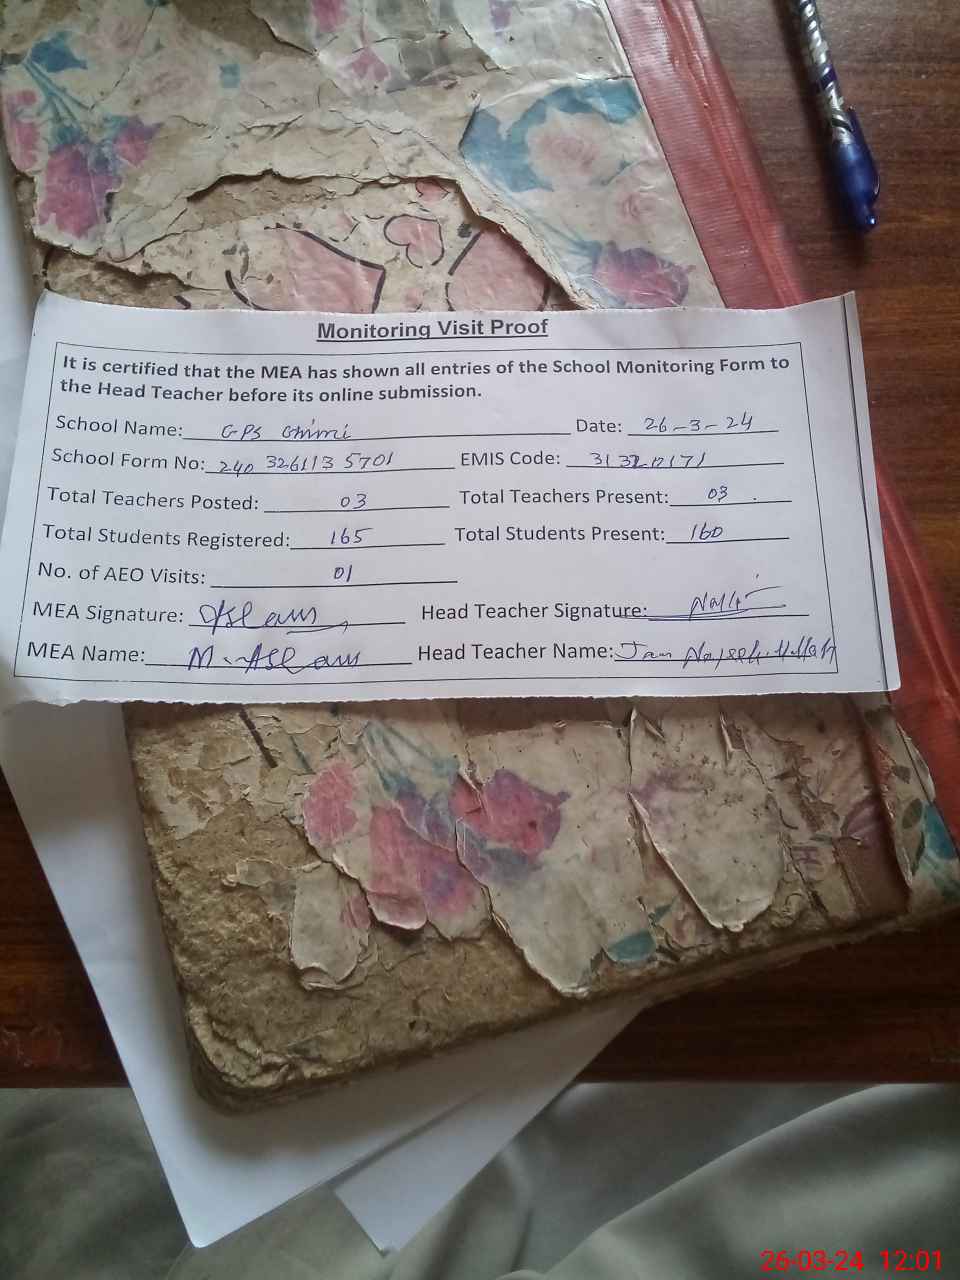 Monitoring Visit Proof
It is certified that the MEA has shown all entries of the School Monitoring Form to
the Head Teacher before its online submission.
School Name: GPS Date: 26-3-24
School Form No: 240 326113 5701 EMIS Code:
Total Teachers Posted: 03 Total Teachers Present: 03
Total Students Registered: 165 Total Students Present: 160
No. of AEO Visits: 01
MEA Signature: Aslam Head Teacher Signature:
MEA Name: M. Aslam Head Teacher Name: Jam
26-03-24 12:01